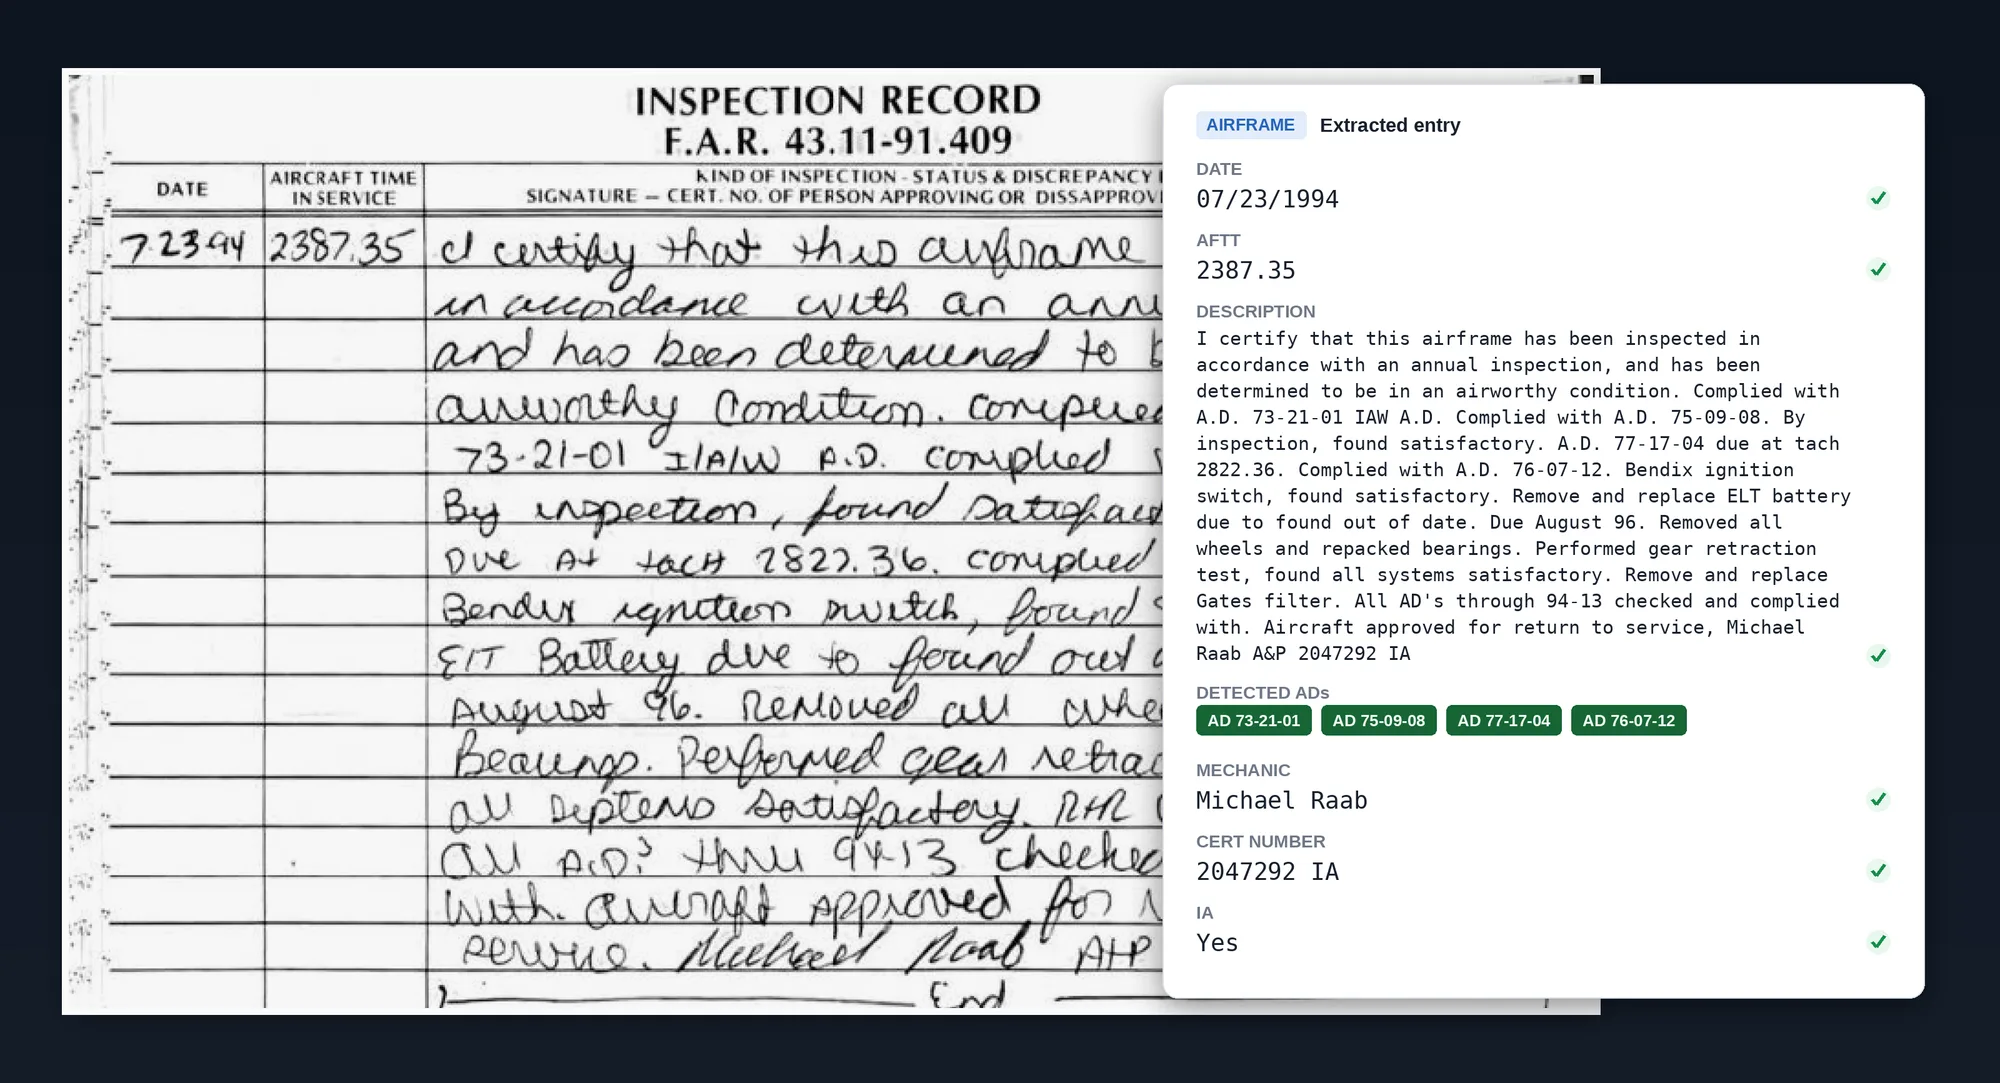 INSPECTION RECORD
F.A.R. 43.11-91.409
DATE
AIRCRAFT TIME
IN SERVICE
KIND OF INSPECTION - STATUS & DISCREPANCY
SIGNATURE — CERT. NO. OF PERSON APPROVING OR DISSAPPROV
7-23-94 2387.35 I certify that this airframe
in accordance with an ann
and has been determined to b
airworthy Condition. Complied
73-21-01 I/A/W A.D. complied
By inspection, found Satisfact
Due At tach 2822.36. complied
Bendix ignition switch, found s
ElT Battery due to found out
August 96. Removed all whe
Bearings. Performed gear retrac
all systems Satisfactory. R+R
all A.D.s thru 94-13 checked
With. aircraft approved for
service. Michael Raab A+P
End
AIRFRAME Extracted entry
DATE
07/23/1994
AFTT
2387.35
DESCRIPTION
I certify that this airframe has been inspected in
accordance with an annual inspection, and has been
determined to be in an airworthy condition. Complied with
A.D. 73-21-01 IAW A.D. Complied with A.D. 75-09-08. By
inspection, found satisfactory. A.D. 77-17-04 due at tach
2822.36. Complied with A.D. 76-07-12. Bendix ignition
switch, found satisfactory. Remove and replace ELT battery
due to found out of date. Due August 96. Removed all
wheels and repacked bearings. Performed gear retraction
test, found all systems satisfactory. Remove and replace
Gates filter. All AD's through 94-13 checked and complied
with. Aircraft approved for return to service, Michael
Raab A&P 2047292 IA
DETECTED ADs
AD 73-21-01 AD 75-09-08 AD 77-17-04 AD 76-07-12
MECHANIC
Michael Raab
CERT NUMBER
2047292 IA
IA
Yes